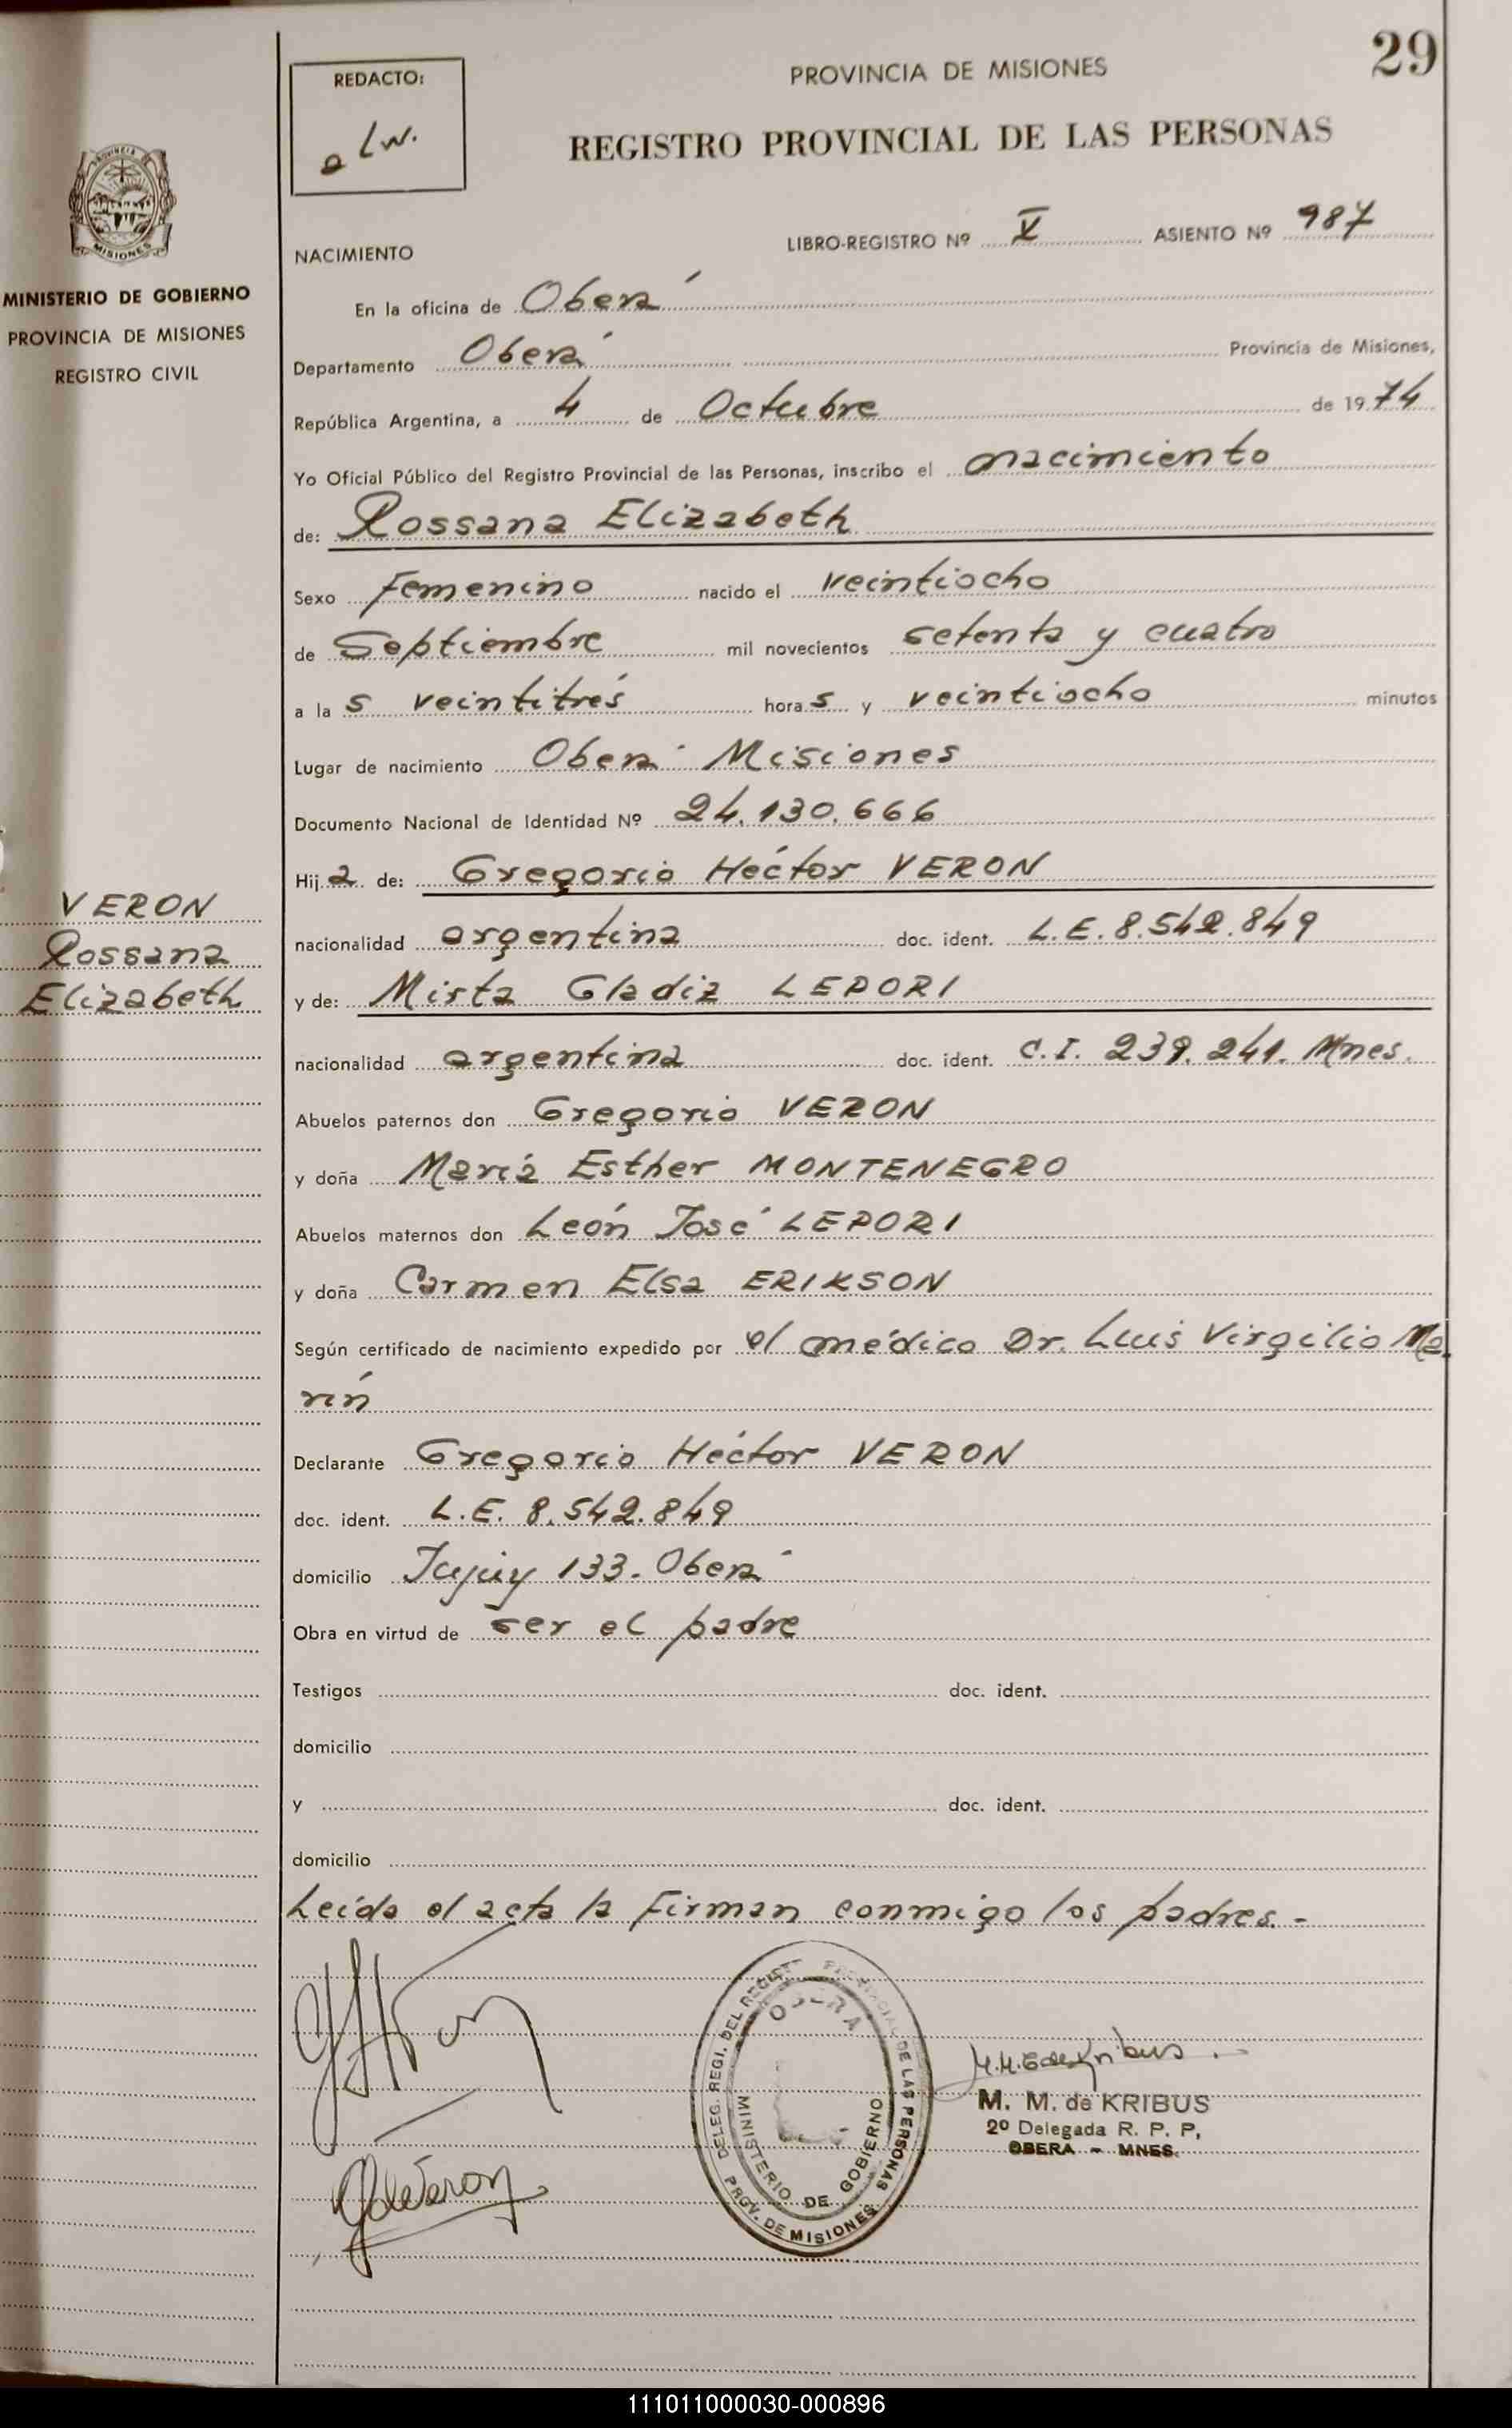 29
REDACTO:
a Lw.
PROVINCIA DE MISIONES
REGISTRO PROVINCIAL DE LAS PERSONAS
PROVINCIA DE
MISIONES
MINISTERIO DE GOBIERNO
PROVINCIA DE MISIONES
REGISTRO CIVIL
NACIMIENTO
LIBRO-REGISTRO Nº V ASIENTO Nº 987
En la oficina de Oberá
Departamento Oberá Provincia de Misiones,
República Argentina, a 4 de Octubre de 1974
Yo Oficial Público del Registro Provincial de las Personas, inscribo el nacimiento
de: Rossana Elizabeth
Sexo Femenino nacido el veintiocho
de Septiembre mil novecientos setenta y cuatro
a la s veintitrés hora s y veintiocho minutos
Lugar de nacimiento Oberá Misiones
Documento Nacional de Identidad Nº 24.130.666
Hij a de: Gregorio Héctor VERON
VERON
Rossana
Elizabeth
nacionalidad argentina doc. ident. L.E. 8.542.849
y de: Mirta Gladiz LEPORI
nacionalidad argentina doc. ident. C.I. 239.241. Mnes.
Abuelos paternos don Gregorio VERON
y doña María Esther MONTENEGRO
Abuelos maternos don León José LEPORI
y doña Carmen Elsa ERIKSON
Según certificado de nacimiento expedido por el médico Dr. Luis Virgilio Ma
rín
Declarante Gregorio Héctor VERON
doc. ident. L.E. 8.542.849
domicilio Jujuy 133. Oberá
Obra en virtud de ser el padre
Testigos doc. ident.
domicilio
y doc. ident.
domicilio
Leída el acta la firman conmigo los padres.-
DELEG. REGI. DEL REGIST. PROVINCIAL DE LAS PERSONAS
OBERA
MINISTERIO DE GOBIERNO
PROV. DE MISIONES
M. M. de KRIBUS
2º Delegada R. P. P.
OBERA - MNES.
111011000030-000896